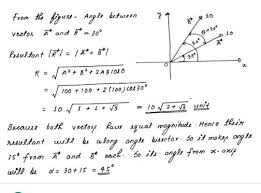 From the figure - Angle between
vector A⃗ and B⃗ = 30°
Resultant |R⃗| = |A⃗ + B⃗|
R = √(A² + B² + 2AB cos θ)
= √(100 + 100 + 2(100) cos 30°
= 10 √(1 + 1 + √3) = 10 √(2 + √3) unit
Because both vectors have equal magnitude. Hence their
resultant will be along angle bisector. So it makes angle
15° from A⃗ and B⃗ each. So its angle from x-axis
will be α = 30 + 15 = 45°
y
B⃗
10
10
A⃗
30°
x